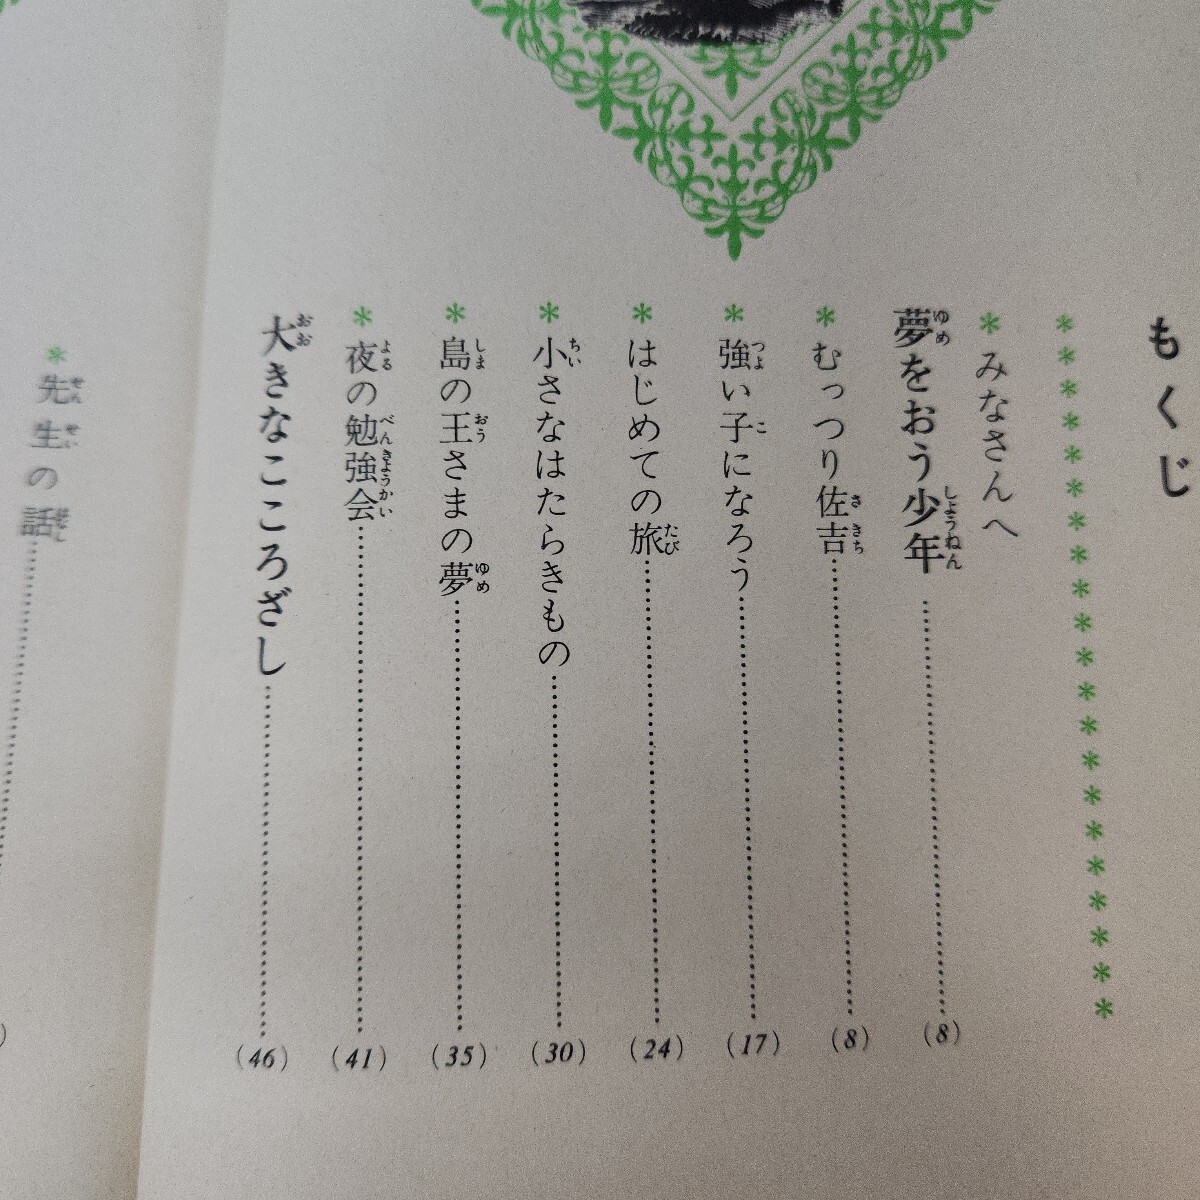 もくじ
＊みなさんへ
夢をおう少年……(8)
＊むっつり佐吉……(8)
＊強い子になろう……(17)
＊はじめての旅……(24)
＊小さなはたらきもの……(30)
＊島の王さまの夢……(35)
＊夜の勉強会……(41)
大きなこころざし……(46)
＊先生の話……